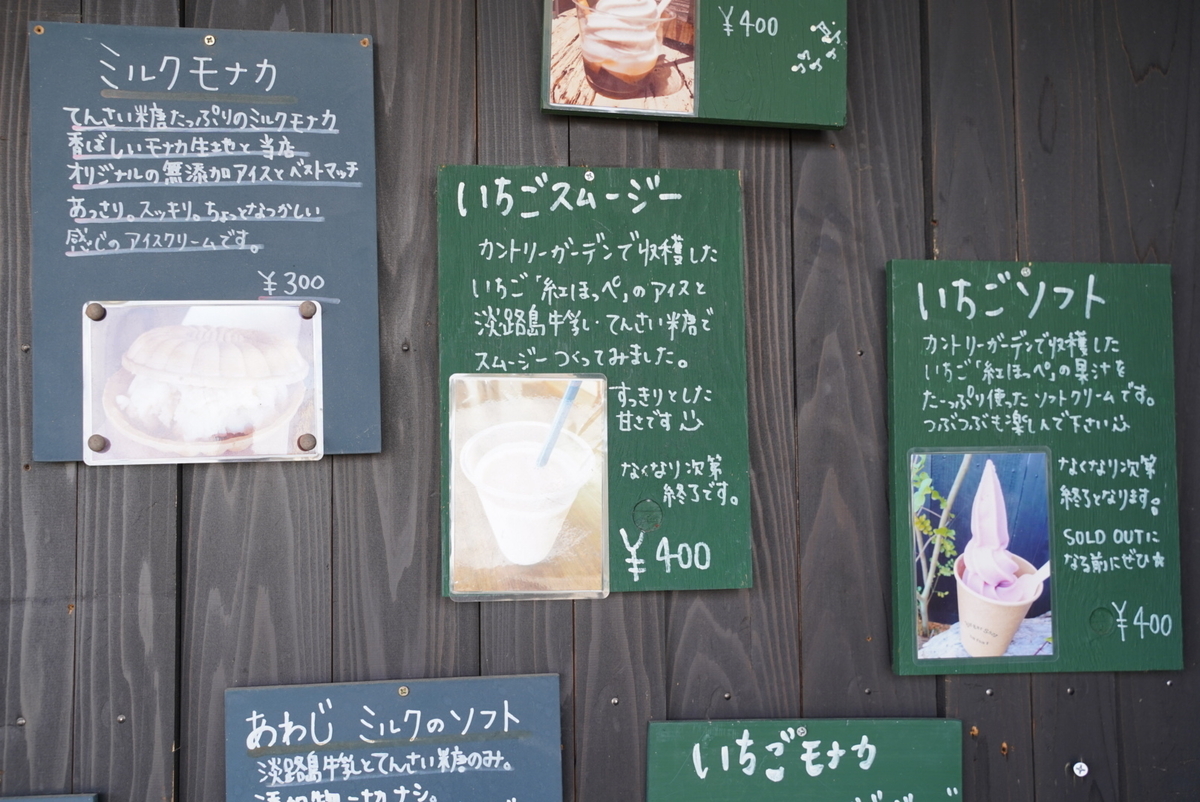 ミルクモナカ
てんさい糖たっぷりのミルクモナカ
香ばしいモナカ生地と当店
オリジナルの無添加アイスとベストマッチ
あっさり。スッキリ。ちょっとなつかしい
感じのアイスクリームです。
¥300
¥400
いちごスムージー
カントリーガーデンで収穫した
いちご「紅ほっぺ」のアイスと
淡路島牛乳・てんさい糖で
スムージーつくってみました。
すっきりとした
甘さです
なくなり次第
終了です。
¥400
いちごソフト
カントリーガーデンで収穫した
いちご「紅ほっぺ」の果汁を
たーっぷり使ったソフトクリームです。
つぶつぶも楽しんで下さい
なくなり次第
終了となります。
SOLD OUTに
なる前にぜひ★
¥400
あわじ ミルクのソフト
淡路島牛乳とてんさい糖のみ。
添加物一切ナシ。
いちごモナカ